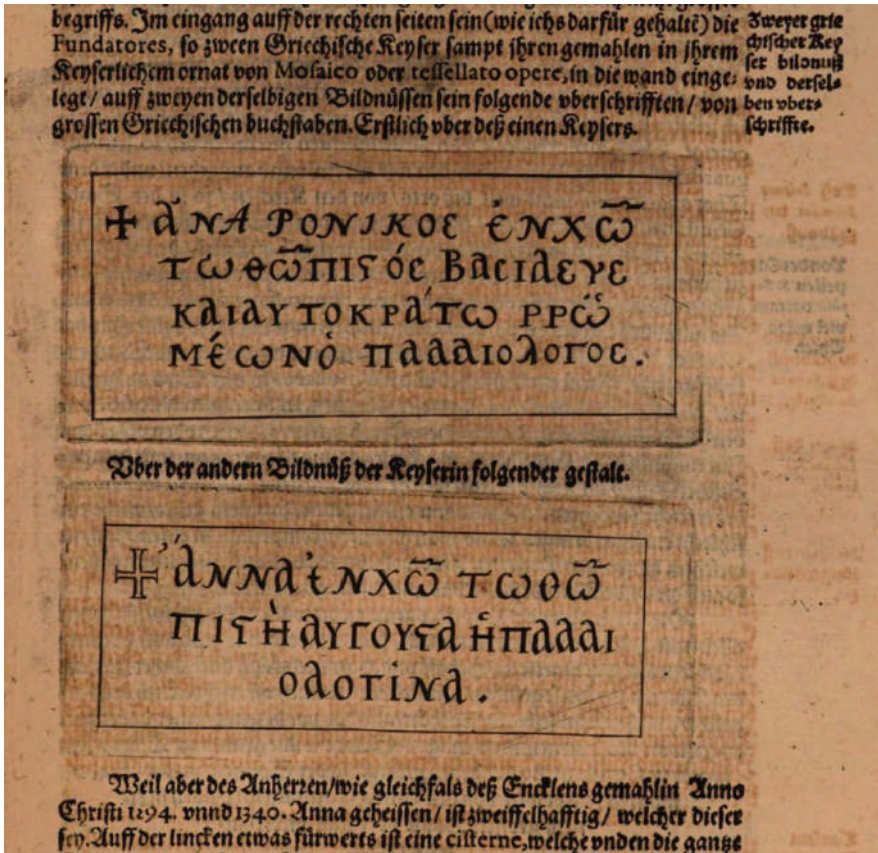 begriffs. Im eingang auff der rechten seiten sein (wie ichs darfür gehaltē) die
Fundatores, so zween Griechische Keyser sampt ihren gemahlen in ihrem
Keyserlichem ornat von Mosaico oder tessellato opere, in die wand einge-
legt / auff zweyen derselbigen Bildnüssen sein folgende vberschrifften / von
grossen Griechischen buchstaben. Erstlich vber deß einen Keysers.
Zweyer grie
chischer Key
ser bildnuß
vnd dersel-
ben vber-
schriffte.
✠ ἀΝΑΡΟΝΙΚΟϹ ἐΝΧῶ
ΤωθῶΠΙϚόϹ ΒΑϹΙΛΕΥϹ
ΚΑΙΑΥΤΟΚΡΆΤω ΡΡω
ΜέωΝὁ ΠΑΛΑΙΟΛΟΓΟϹ.
Vber der andern Bildnüß der Keyserin folgender gestalt.
✠ ἄΝΝΑἐΝΧῶ Τωθῶ
ΠΙϚὴ ΑΥΓΟΥϚΑ ἡΠΑΛΑΙ
ΟΛΟΓίΝΑ.
Weil aber des Anherren / wie gleichfals deß Encklens gemahlin Anno
Christi 1294. vnnd 1340. Anna geheissen / ist zweiffelhafftig / welcher dieser
sey. Auff der lincken etwas fürwerts ist eine cisterne, welche vnden die gantze